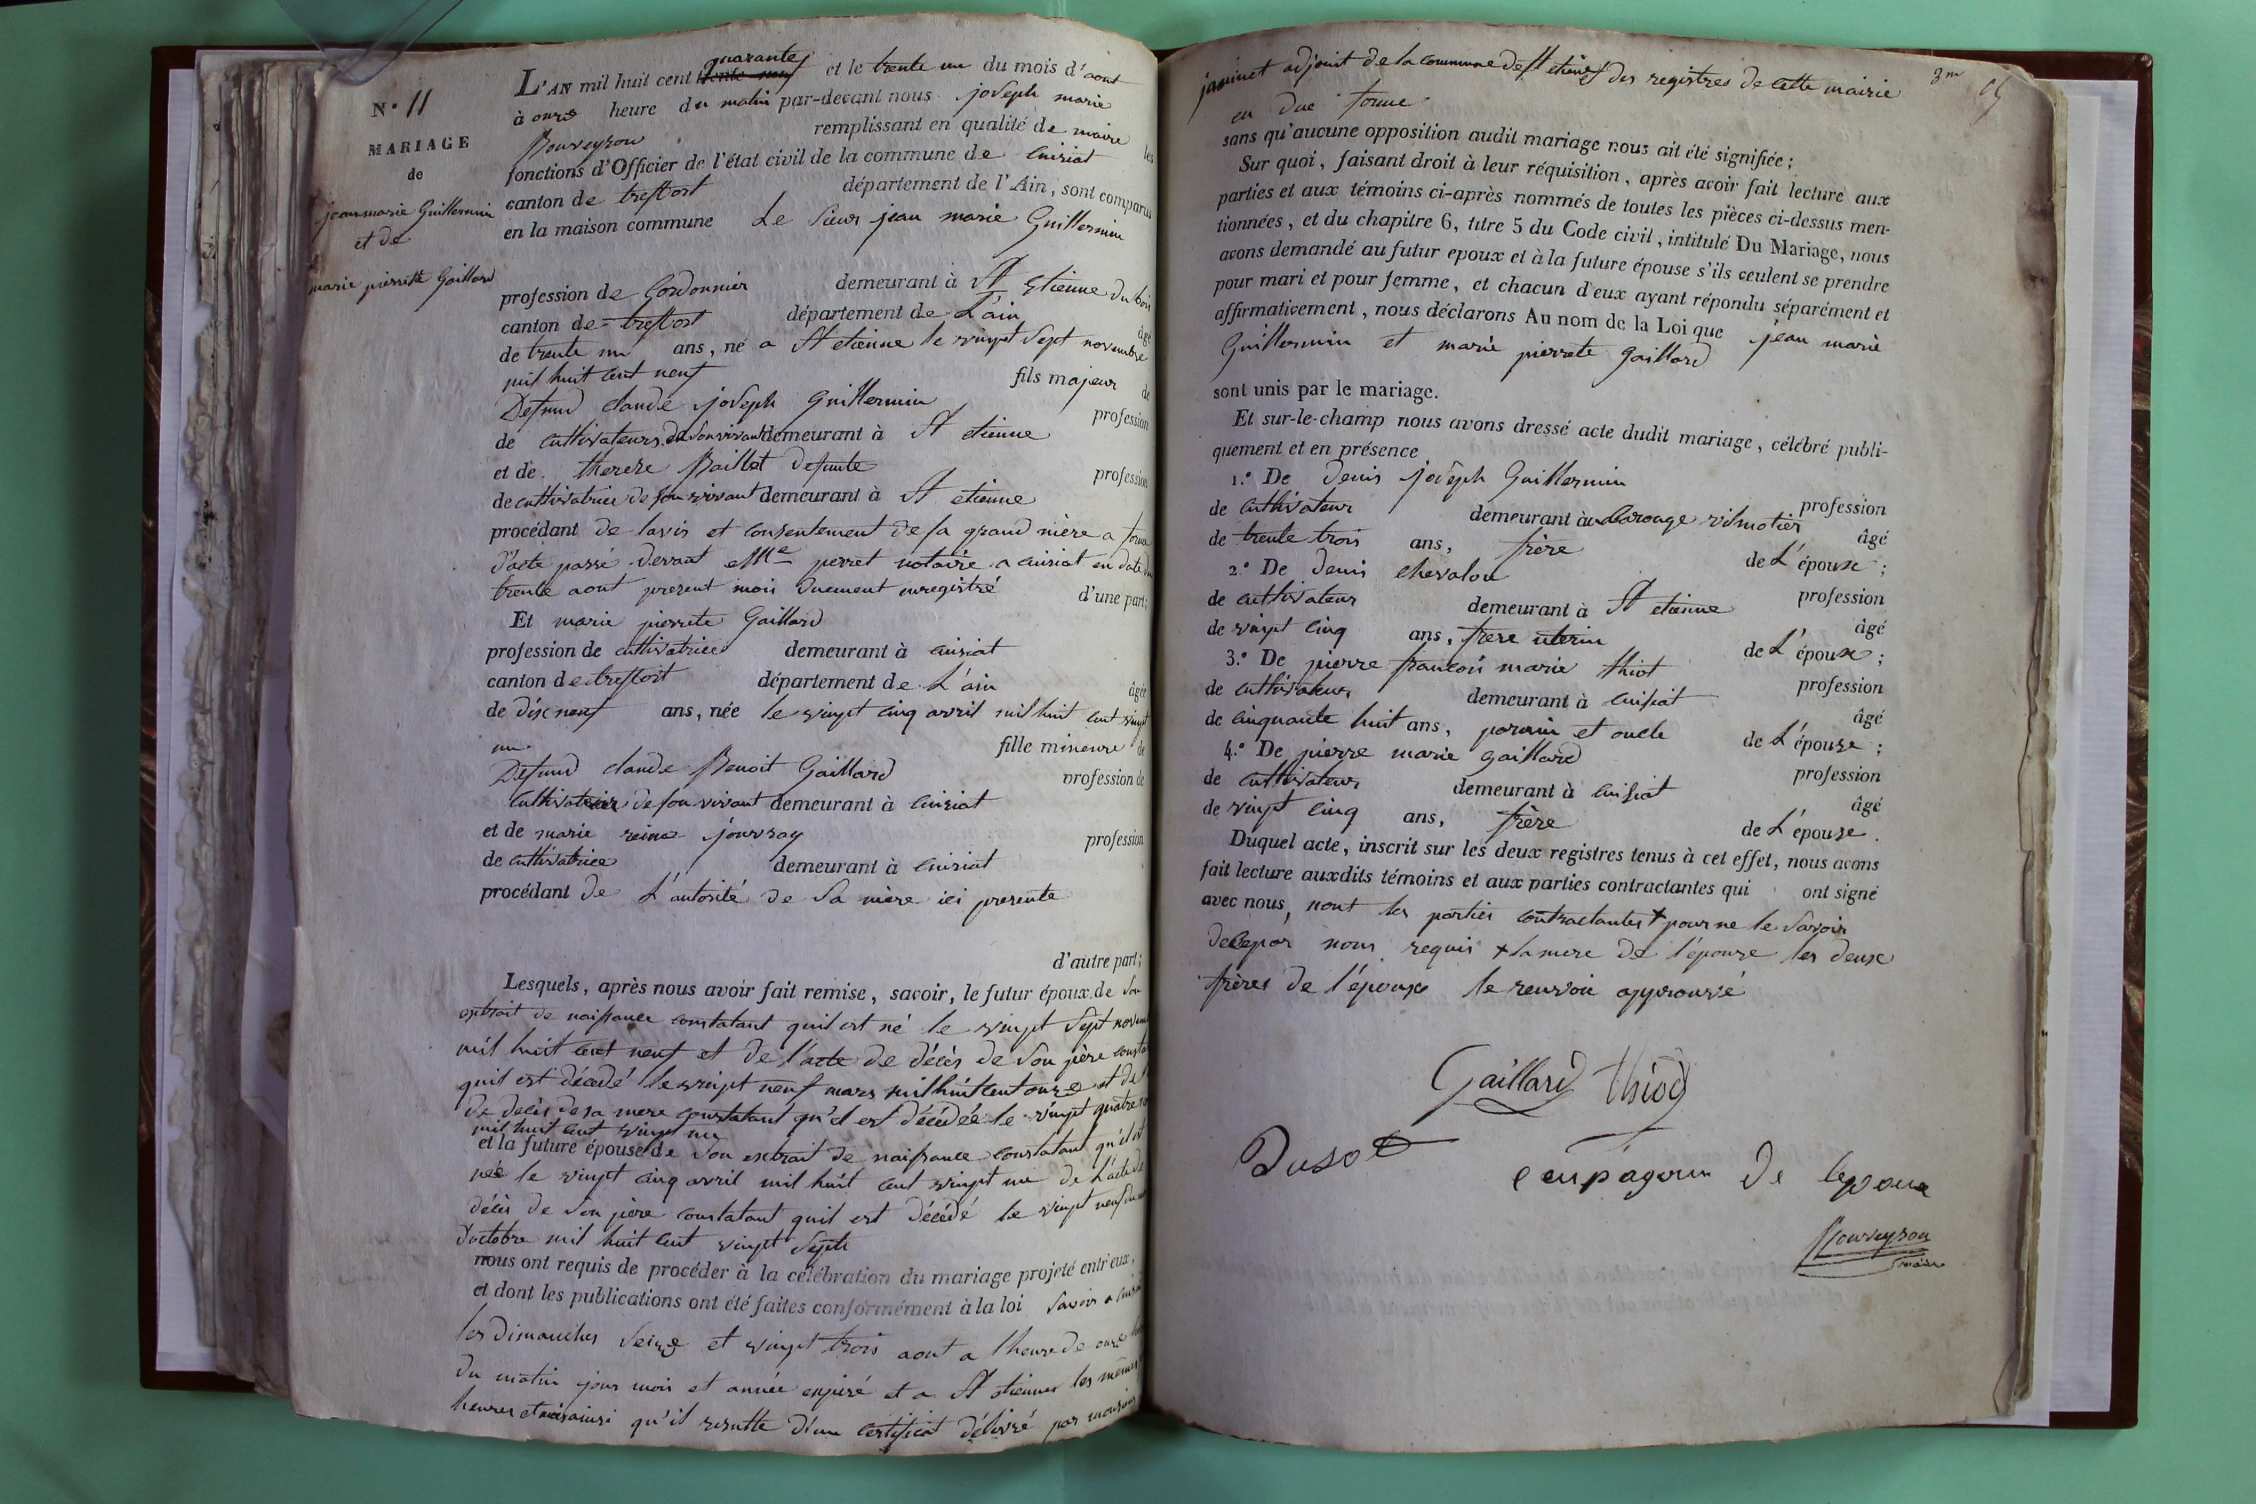 N.° 11
MARIAGE
de
jean marie Guillermin
et de
marie pierrette Gaillard
L'AN mil huit cent trente neuf quarante et le trente un du mois d'aout
à onze heure du matin par-devant nous joseph marie
Bouveyron remplissant en qualité de maire les
fonctions d'Officier de l'état civil de la commune de Cuisiat
canton de treffort département de l'Ain, sont comparus
en la maison commune Le Sieur jean marie Guillermin
profession de Cordonnier demeurant à St Etienne du bois
canton de treffort département de L'ain âgé
de trente un ans, né a St etienne le vingt Sept novembre
mil huit cent neuf fils majeur de
Defund claude joseph Guillermin profession
de cultivateurs de son vivant demeurant à St etienne
et de therese Baillet defunte profession
de cultivatrice de son vivant demeurant à St etienne
procédant de lavis et consentement de sa grand mère a forme
d'acte passé devant Me perret notaire a Cuisiat en date du
trente aout present mois duement enregistré d'une part;
Et marie pierrete Gaillard
profession de cultivatrice demeurant à Cuisiat
canton de treffort département de L'ain âgée
de dix neuf ans, née le vingt cinq avril mil huit cent vingt
un fille mineure de
Defund claude Benoit Gaillard profession de
Cultivateur de son vivant demeurant à Cuisiat
et de marie reine jouvray profession
de cultivatrice demeurant à Cuisiat
procédant de L'autorité de Sa mère ici presente
d'autre part;
Lesquels, après nous avoir fait remise, savoir, le futur époux de Son
extrait de naissance constatant quil est né le vingt Sept
mil huit cent neuf et de l'acte de décès de Son père
quil est décédé le vingt neuf mars mil huit cent onze et de
de decès de sa mere constatant qu'el est décédée le vingt quatre
mil huit cent vingt un
et la future épouse de Son extrait de naissance constatant qu'el est
née le vingt cinq avril mil huit cent vingt un de L'acte de
décès de Son père constatant quil est décédé le vingt neuf
d'octobre mil huit cent vingt Sept
nous ont requis de procéder à la célébration du mariage projeté entr'eux,
et dont les publications ont été faites conformément à la loi Savoir a
les Dimanches Seize et vingt trois aout a l'heure de onze
du matin jour mois et année expiré et a St etienne les mêmes
heures et ainsi qu'il resulte d'un certificat délivré par
janinet adjoint de la commune de St etienne des registres de cette mairie
en due forme
sans qu'aucune opposition audit mariage nous ait été signifiée;
Sur quoi, faisant droit à leur réquisition, après avoir fait lecture aux
parties et aux témoins ci-après nommés de toutes les pièces ci-dessus men-
tionnées, et du chapitre 6, titre 5 du Code civil, intitulé Du Mariage, nous
avons demandé au futur epoux et à la future épouse s'ils veulent se prendre
pour mari et pour femme, et chacun d'eux ayant répondu séparément et
affirmativement, nous déclarons Au nom de la Loi que jean marie
Guillermin et marie pierrete Gaillard
sont unis par le mariage.
Et sur-le-champ nous avons dressé acte dudit mariage, célébré publi-
quement et en présence
1.° De Denis joseph Guillermin profession
de cultivateur demeurant à âgé
de trente trois ans, frère de L'époux;
2.° De Denis chevalon profession
de cultivateur demeurant à St etienne âgé
de vingt cinq ans, frere uterin de L'époux;
3.° De pierre francois marie thiot profession
de cultivateur demeurant à Cuisiat âgé
de cinquante huit ans, parain et oncle de L'épouse;
4.° De pierre marie Gaillard profession
de cultivateur demeurant à Cuisiat âgé
de vingt cinq ans, frère de L'épouse.
Duquel acte, inscrit sur les deux registres tenus à cet effet, nous avons
fait lecture auxdits témoins et aux parties contractantes qui ont signé
avec nous, nont les parties contractantes + pour ne le Savoir
de nous requis + la mere de l'épouse les deux
frères de l'époux le renvoi approuvé
Gaillard Thiod
Dusot
de
Bouveyron
maire